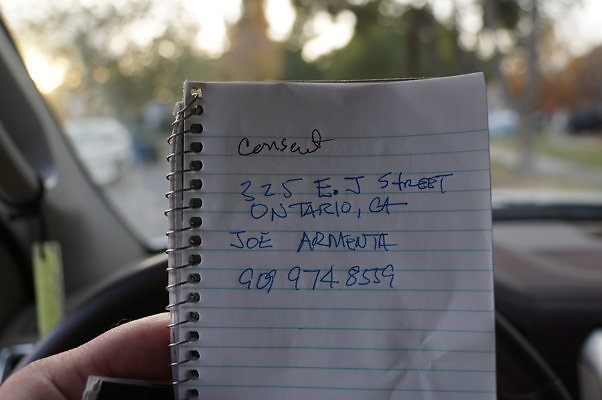 consent
325 E. J STREET
ONTARIO, CA
JOE ARMENTA
909 974 8559